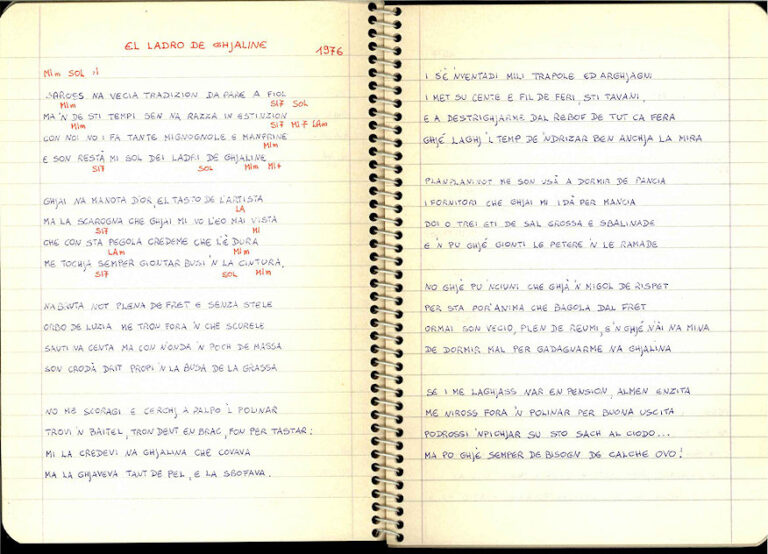 EL LADRO DE GHJALINE
1976
MIm SOL
SAROES NA VECIA TRADIZION DA PARE A FIOL
MIm SI7 SOL
MA 'N DE STI TEMPI SEN NA RAZZA IN ESTINZION
MIm SI7 MI7 LAm
CON NOI NO I FA TANTE MIGNOGNOLE E MANFRINE
MIm
E SON RESTÀ MI SOL DEI LADRI DE GHJALINE
SI7 SOL MIm MI7
GHJAI NA MANOTA D'OR, EL TASTO DE L'ARTISTA
LA
MA LA SCAROGNA CHE GHJAI MI VO L'EO MAI VISTA
SI7 MI
CHE CON STA PEGOLA CREDEME CHE L'È DURA
LAm MIm
ME TOCHJA SEMPER GIONTAR BUSI 'N LA CINTURA.
SI7 SOL MIm
NA BRUTA NOT PLENA DE FRET E SENZA STELE
ORBO DE LUZIA ME TRON FORA 'N CHE SCURELE
SAUTI NA CENTA MA CON N'ONDA 'N POCH DE MASSA
SON CRODÀ DRIT PROPI 'N LA BUSA DE LA GRASSA
NO ME SCORAGI E CERCHJ A PALPO 'L POLINAR
TROVI 'N BAITEL, TRON DEVT EN BRAC, FON PER TASTAR:
MI LA CREDEVI NA GHJALINA CHE COVAVA
MA LA GHJAVEVA TANT DE PEL, E LA SBOFAVA.
I S'È 'NVENTADI MILI TRAPOLE ED ARGHJAGNI
I MET SU CENTE E FIL DE FERI, STI TAVANI,
E A DESTRIGHJARME DAL REBOF DE TUT CA FERA
GHJÉ LAGHJ 'L TEMP DE 'NDRIZAR BEN ANCHJA LA MIRA
PLANPLANINOT ME SON USÀ A DORMIR DE PANCIA
I FORNITORI CHE GHJAI MI I DÀ PER MANCIA
DOI O TREI ETI DE SAL GROSSA E SBALINADE
E 'N PU GHJÉ GIONTI LE PETERE 'N LE RAMADE
NO GHJÉ PU 'NCIUNI CHE GHJÀ 'N MIGOL DE RISPET
PER STA POR'ANIMA CHE BAGOLA DAL FRET
ORMAI SON VECIO, PLEN DE REUMI, E 'N GHJÉ N'ÀI NA MINA
DE DORMIR MAL PER GADAGNARME NA GHJALINA
SE I ME LAGHJASS NAR EN PENSION, ALMEN ENZITA
ME NIROSS FORA 'N POLINAR PER BUONA USCITA
PODROSSI 'NPICHJAR SU STO SACH AL CIODO...
MA PO GHJÉ SEMPER DE BISOGN DE CALCHE OVO!